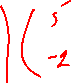 |(5
-2